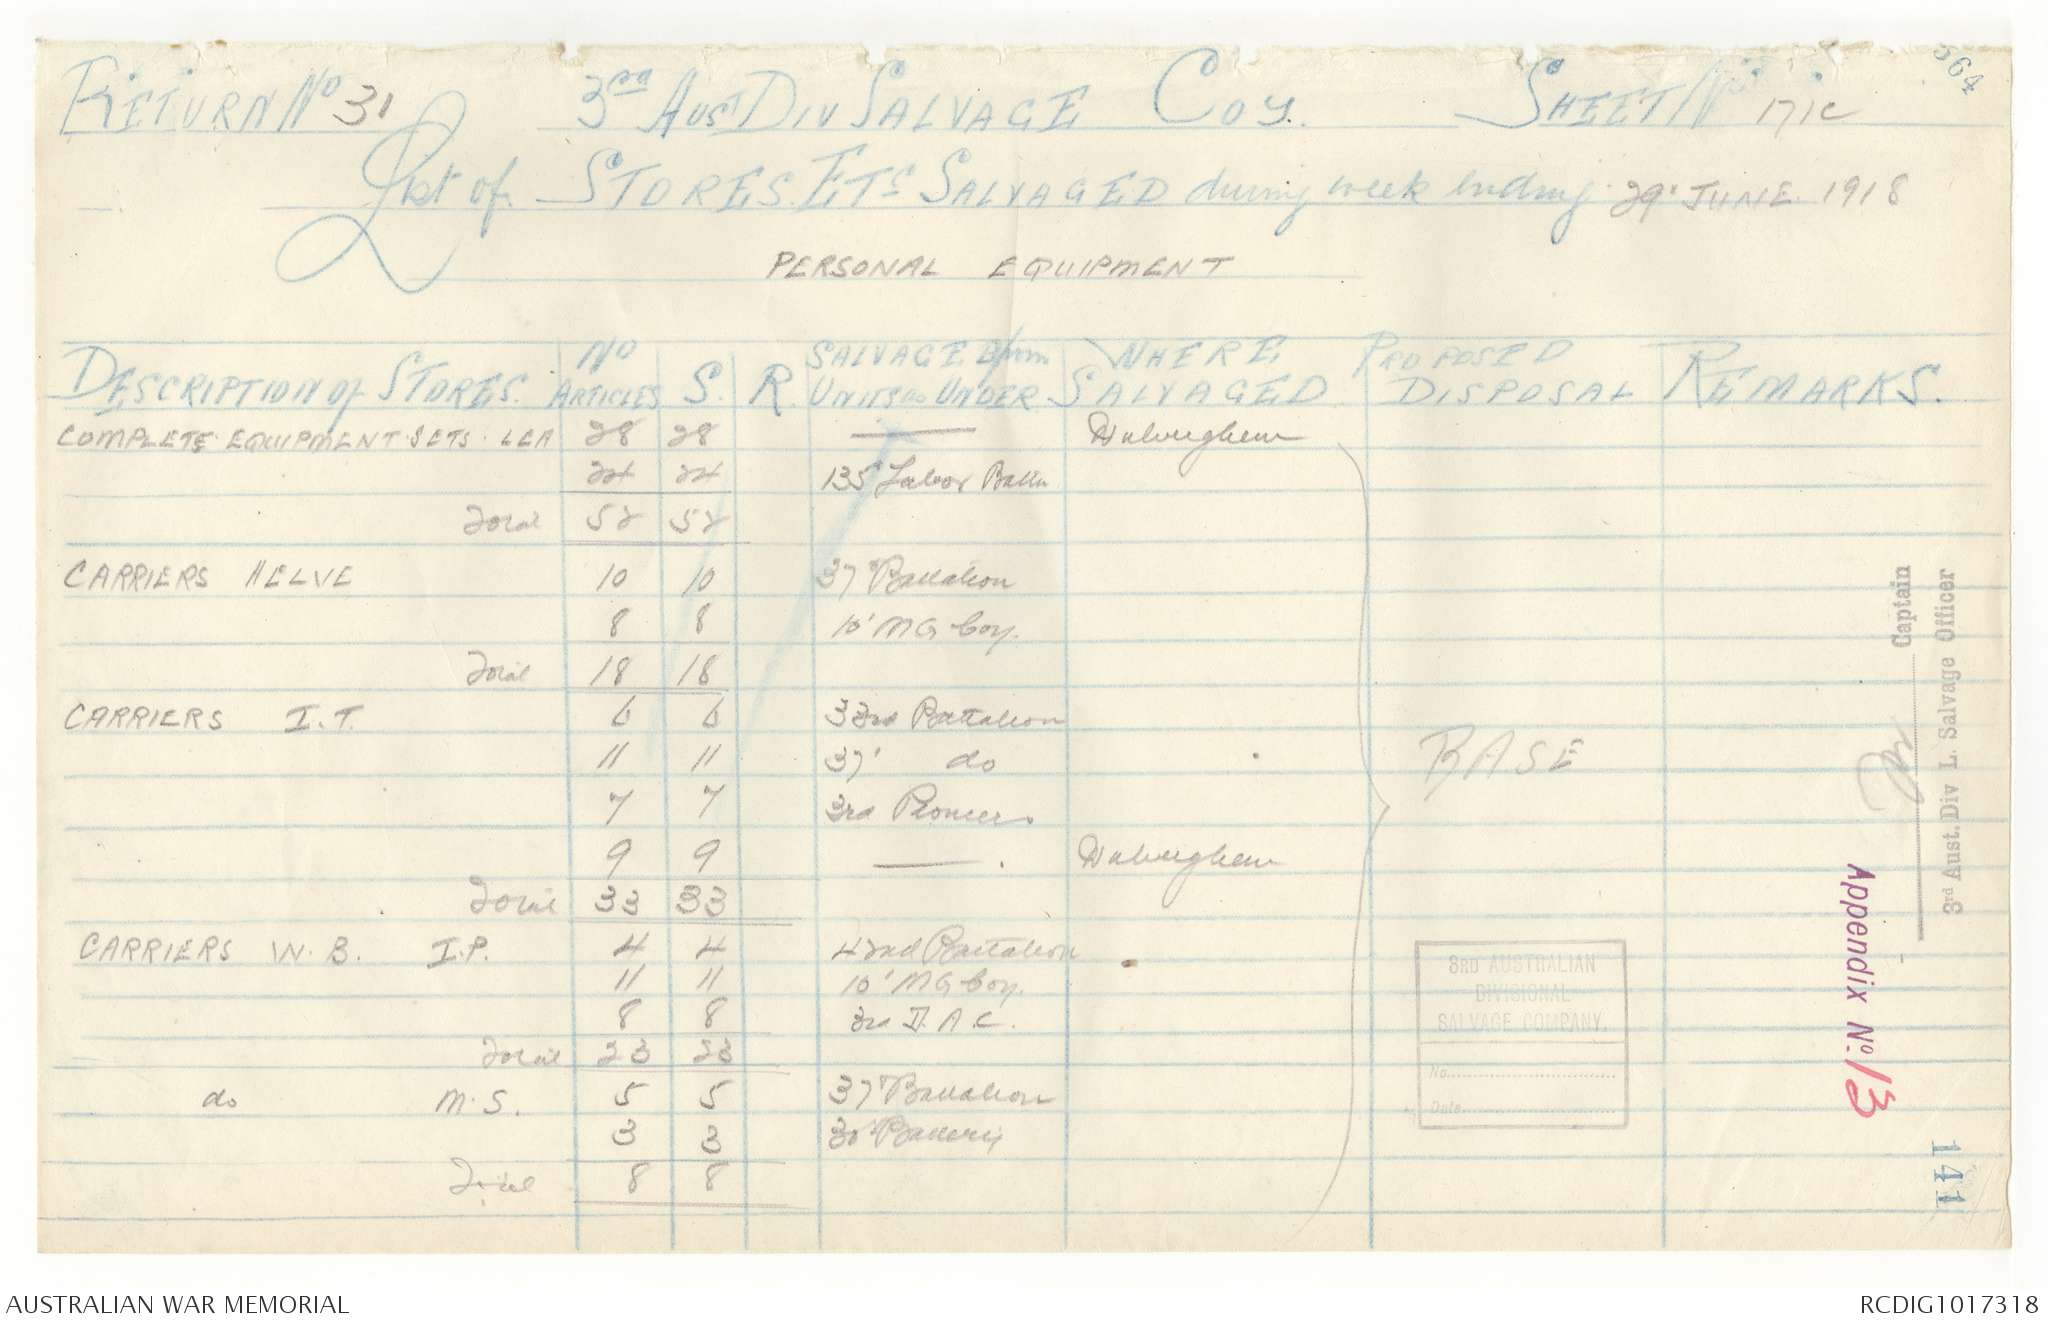 564
RETURN No 31 3RD AUST DIV SALVAGE COY. SHEET No 171c
List of STORES. ETc SALVAGED during week ending 29' JUNE. 1918
PERSONAL EQUIPMENT
DESCRIPTION of STORES. No ARTICLES S. R. SALVAGED from UNITS as UNDER WHERE SALVAGED PROPOSED DISPOSAL REMARKS.
COMPLETE EQUIPMENT SETS. LEA 28 28 —
24 24 135' Labor Battn
Total 52 52
CARRIERS HELVE 10 10 37th Battalion
8 8 10' MG Coy.
Total 18 18
CARRIERS I.T. 6 6 33rd Battalion
11 11 37' do
7 7 3rd Pioneers
9 9 —
Total 33 33
CARRIERS W.B. I.P. 4 4 42nd Battalion
11 11 10' MG Coy.
8 8 3rd D.A.C.
Total 23 23
do M.S. 5 5 37' Battalion
3 3 30' Battery
Total 8 8
BASE
3RD AUSTRALIAN
DIVISIONAL
SALVAGE COMPANY.
No.
Date
Captain
3rd Aust. Div L. Salvage Officer
Appendix No. 13
141
AUSTRALIAN WAR MEMORIAL
RCDIG1017318